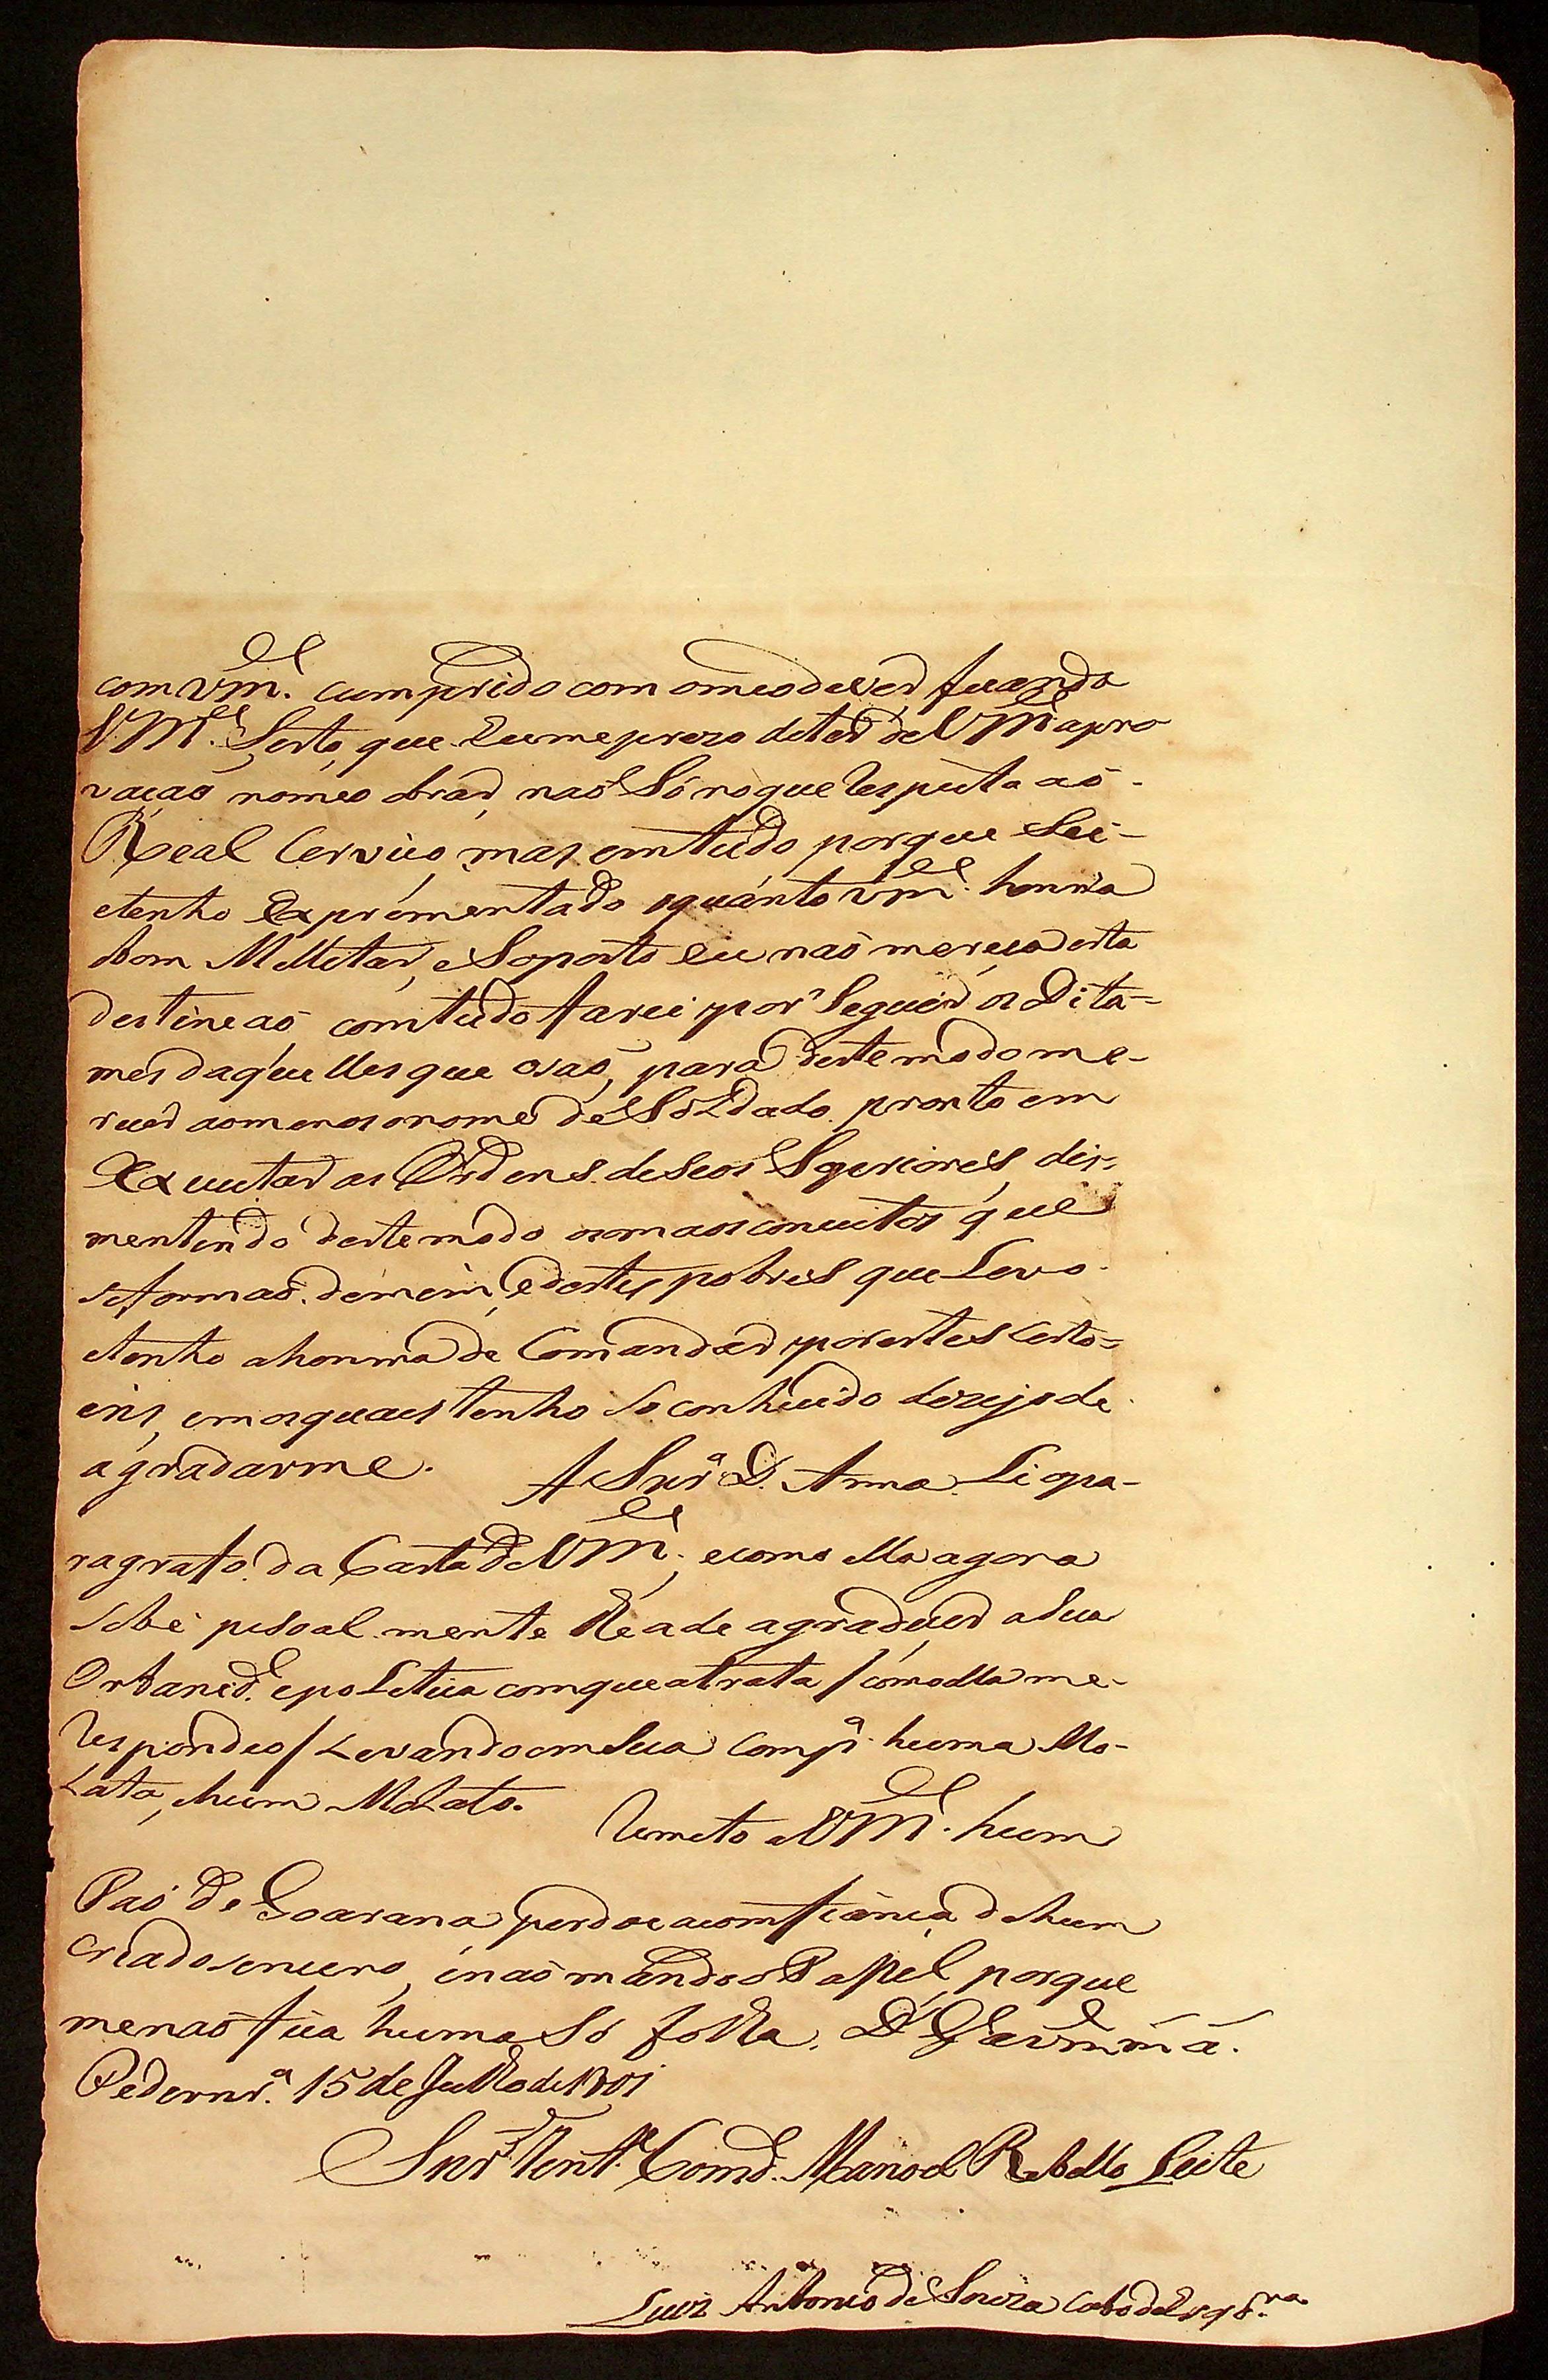 com Vm.ce cumprido com o meo dever ficando
V.M.ce Serto, que Eu me prezo de ter de VM.ce apro
vação no meo obrar, não Só no que Respeita ao
Real Cerviço mas em tudo porque Sei
e tenho Expromentado o quanto Vm.ce honrra
o bom Melitar, e Soposto eu não mereça esta
destinção, comtudo farei por Seguir os Dita=
mes daquelles que o são, para deste modo me-
recer ao menos o nome de Soldado pronto em
Executar as Ordens de Seos Superiores, dis-
mentindo deste modo os maos conceitos que
se formão de mim, e destes pobres que Levo
e tenho a honrra de Comandar por estes Certo=
ens, em os quaes tenho So conhecido dezejo de
agradarme. A Snr.a D. Anna Li o pa-
ragrafo da Carta de VM.ce, e como ella agora
sobe pesoal mente Lhe a de agradecer a Sua
Orbanid.e e poLetica com que a trata / como ella me
Respondeo / Levando em Sua comp.a huma Mo-
Lata, e hum MoLato. Remeto a VM.ce hum
Pão de Goarana perdoe a comfiança de hum
criado sincero, e não mando o Papel, porque
me não fica huma Só folha. D.s G.e a Vm.ce m.s a.s
Pedern.ra 15 de Julho de 1801
Snr. Tent.e Comd.e Manoel Rebello Leite
Luiz Antonio de Souza Cabo de Esqd.ra